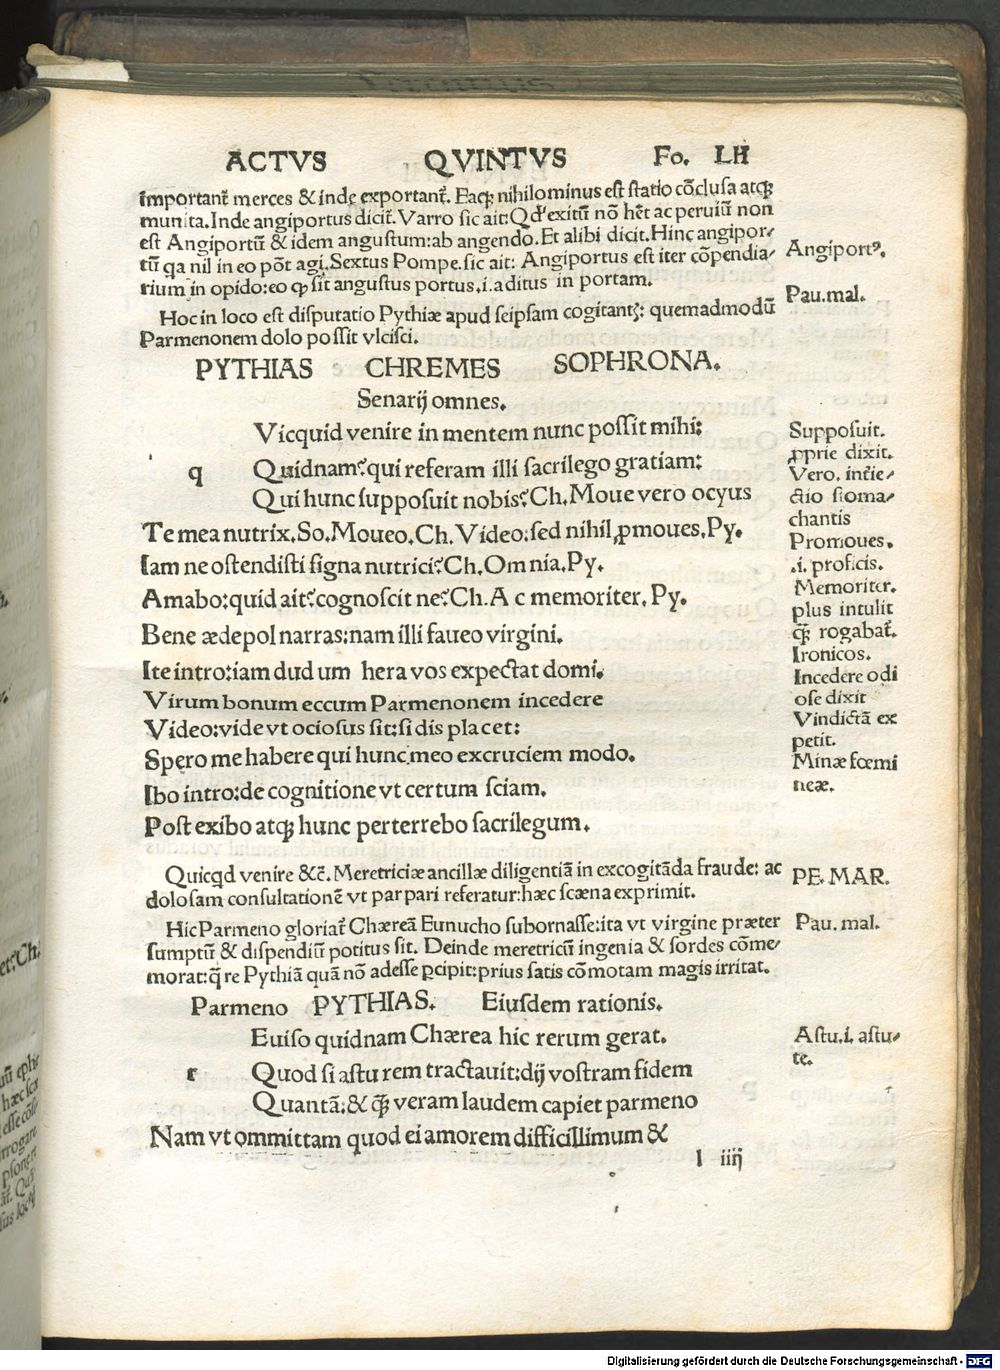 ACTVS QVINTVS Fo. LII
important᷑ merces & inde exportant᷑. Eaqꝫ nihilominus est statio cōclusa atqꝫ
munita. Inde angiportus dicit᷑. Varro sic ait: Qd' exitū nō hēt ac peruiū non
est Angiportū & idem angustum: ab angendo. Et alibi dicit. Hinc angipor-
tū qa nil in eo pōt agi. Sextus Pompe. sic ait: Angiportus est iter cōpendia-
rium in opido: eo ꝙ sit angustus portus. i. aditus in portam.
Angiportꝰ.
Hoc in loco est disputatio Pythiæ apud seipsam cogitantꝭ: quemadmodū
Parmenonem dolo possit vlcisci.
Pau. mal.
PYTHIAS CHREMES SOPHRONA.
Senarij omnes.
q
Vicquid venire in mentem nunc possit mihi:
Quidnam? qui referam illi sacrilego gratiam:
Qui hunc supposuit nobis? Ch. Moue vero ocyus
Te mea nutrix. So. Moueo. Ch. Video: sed nihil ꝓmoues. Py.
Iam ne ostendisti signa nutrici? Ch. Omnia. Py.
Amabo: quid ait? cognoscit ne? Ch. Ac memoriter. Py.
Bene ædepol narras: nam illi faueo virgini.
Ite intro: iam dud um hera vos expectat domi.
Virum bonum eccum Parmenonem incedere
Video: vide vt ociosus sit: si dis placet:
Spero me habere qui hunc meo excruciem modo.
Ibo intro: de cognitione vt certum sciam.
Post exibo atqꝫ hunc perterrebo sacrilegum.
Supposuit.
ꝓprie dixit.
Vero. inťie-
ctio stoma-
chantis
Promoues.
.i. proficis.
Memoriter.
plus intulit
qꝫ̃ rogabat᷑.
Ironicos.
Incedere odi
ose dixit
Vindictā ex
petit.
Minæ fœmi
neæ.
Quicqd venire &c̄. Meretriciæ ancillæ diligentiā in excogitāda fraude: ac
dolosam consultationē vt par pari referatur: hæc scæna exprimit.
PE. MAR.
Hic Parmeno gloriat᷑ Chæreā Eunucho subornasse: ita vt virgine præter
sumptū & dispendiū potitus sit. Deinde meretricū ingenia & sordes cōme-
morat: q̄re Pythiā quā nō adesse ꝑcipit: prius satis cōmotam magis irritat.
Pau. mal.
Parmeno PYTHIAS. Eiusdem rationis.
r
Euiso quidnam Chærea hic rerum gerat.
Quod si astu rem tractauit: dij vostram fidem
Quantā: & qꝫ̃ veram laudem capiet parmeno
Nam vt ommittam quod ei amorem difficillimum &
Astu. i. astu-
te.
l iiij
Digitalisierung gefördert durch die Deutsche Forschungsgemeinschaft - DFG